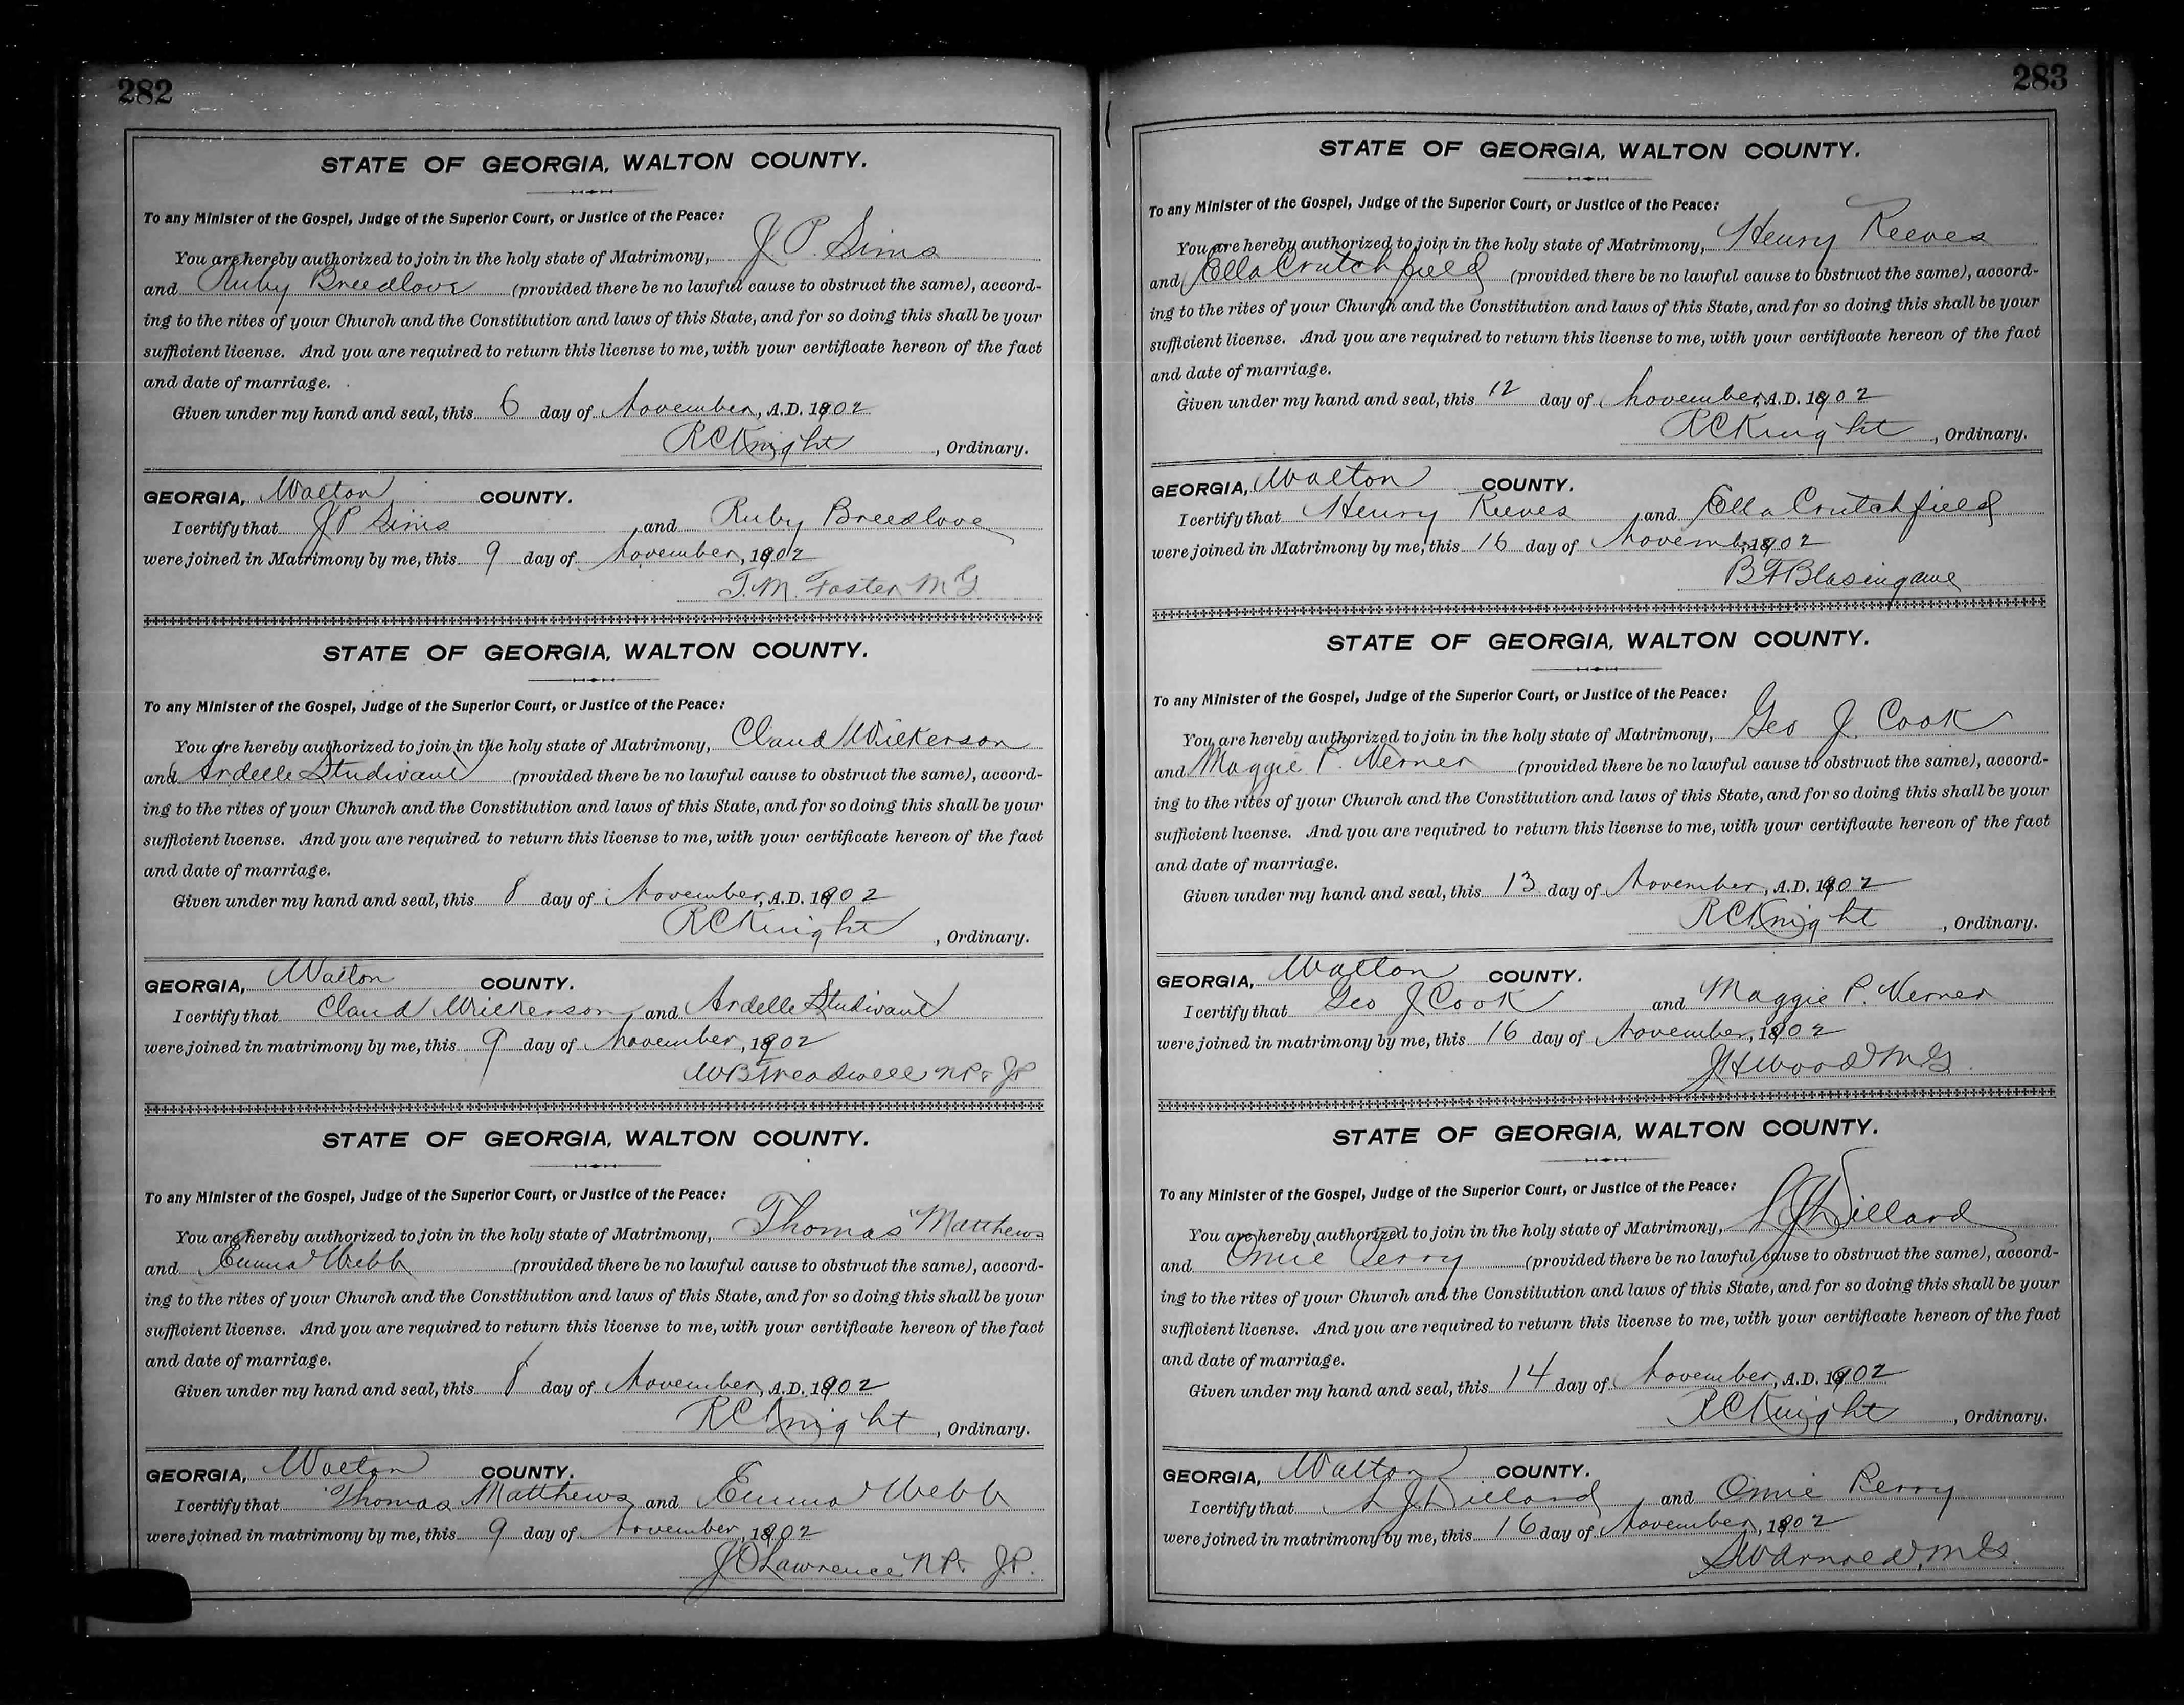 282
STATE OF GEORGIA, WALTON COUNTY.
To any Minister of the Gospel, Judge of the Superior Court, or Justice of the Peace:
You are hereby authorized to join in the holy state of Matrimony, J. P. Sims
and Ruby Breedlove (provided there be no lawful cause to obstruct the same), accord-
ing to the rites of your Church and the Constitution and laws of this State, and for so doing this shall be your
sufficient license. And you are required to return this license to me, with your certificate hereon of the fact
and date of marriage.
Given under my hand and seal, this 6 day of November, A.D. 1902
R C Knight, Ordinary.
GEORGIA, Walton COUNTY.
I certify that J P Sims and Ruby Breedlove
were joined in Matrimony by me, this 9 day of November, 1902
T. M. Foster M G
STATE OF GEORGIA, WALTON COUNTY.
To any Minister of the Gospel, Judge of the Superior Court, or Justice of the Peace:
You are hereby authorized to join in the holy state of Matrimony, Claud Wilkerson
and Ardelle Studivant (provided there be no lawful cause to obstruct the same), accord-
ing to the rites of your Church and the Constitution and laws of this State, and for so doing this shall be your
sufficient license. And you are required to return this license to me, with your certificate hereon of the fact
and date of marriage.
Given under my hand and seal, this 8 day of November, A.D. 1902
R C Knight, Ordinary.
GEORGIA, Walton COUNTY.
I certify that Claud Wilkerson and Ardelle Studivant
were joined in matrimony by me, this 9 day of November, 1902
W B Treadwell N P & J P
STATE OF GEORGIA, WALTON COUNTY.
To any Minister of the Gospel, Judge of the Superior Court, or Justice of the Peace:
You are hereby authorized to join in the holy state of Matrimony, Thomas Matthews
and Emma Webb (provided there be no lawful cause to obstruct the same), accord-
ing to the rites of your Church and the Constitution and laws of this State, and for so doing this shall be your
sufficient license. And you are required to return this license to me, with your certificate hereon of the fact
and date of marriage.
Given under my hand and seal, this 8 day of November, A.D. 1902
R C Knight, Ordinary.
GEORGIA, Walton COUNTY.
I certify that Thomas Matthews and Emma Webb
were joined in matrimony by me, this 9 day of November, 1902
J O Lawrence N P & J. P.
283
STATE OF GEORGIA, WALTON COUNTY.
To any Minister of the Gospel, Judge of the Superior Court, or Justice of the Peace:
You are hereby authorized to join in the holy state of Matrimony, Henry Reeves
and Ella Crutchfield (provided there be no lawful cause to obstruct the same), accord-
ing to the rites of your Church and the Constitution and laws of this State, and for so doing this shall be your
sufficient license. And you are required to return this license to me, with your certificate hereon of the fact
and date of marriage.
Given under my hand and seal, this 12 day of November, A.D. 1902
R C Knight, Ordinary.
GEORGIA, Walton COUNTY.
I certify that Henry Reeves and Ella Crutchfield
were joined in Matrimony by me, this 16 day of November, 1902
B F Blasingame
STATE OF GEORGIA, WALTON COUNTY.
To any Minister of the Gospel, Judge of the Superior Court, or Justice of the Peace:
You are hereby authorized to join in the holy state of Matrimony, Geo J. Cook
and Maggie P. Verner (provided there be no lawful cause to obstruct the same), accord-
ing to the rites of your Church and the Constitution and laws of this State, and for so doing this shall be your
sufficient license. And you are required to return this license to me, with your certificate hereon of the fact
and date of marriage.
Given under my hand and seal, this 13 day of November, A.D. 1902
R C Knight, Ordinary.
GEORGIA, Walton COUNTY.
I certify that Geo J Cook and Maggie P. Verner
were joined in matrimony by me, this 16 day of November, 1902
J H Wood M G
STATE OF GEORGIA, WALTON COUNTY.
To any Minister of the Gospel, Judge of the Superior Court, or Justice of the Peace:
You are hereby authorized to join in the holy state of Matrimony, L J Dillard
and Onnie Perry (provided there be no lawful cause to obstruct the same), accord-
ing to the rites of your Church and the Constitution and laws of this State, and for so doing this shall be your
sufficient license. And you are required to return this license to me, with your certificate hereon of the fact
and date of marriage.
Given under my hand and seal, this 14 day of November, A.D. 1902
R C Knight, Ordinary.
GEORGIA, Walton COUNTY.
I certify that L J Dillard and Onnie Perry
were joined in matrimony by me, this 16 day of November, 1902
S W Arnold, M G.